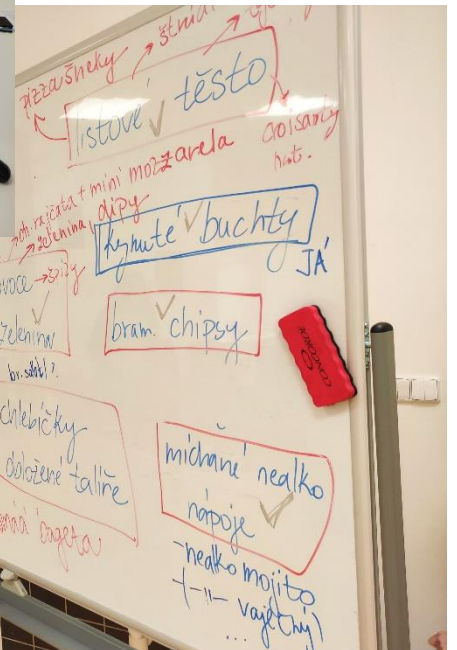 pizza šneky
listové těsto
croisanty
ch. rajčata + mini mozzarela
zelenina, dipy
kynuté buchty
JÁ
ovoce → špízy
zelenina
bram. chipsy
CONCORDE
br. salát?
chlebíčky
obložené talíře
bageta
míchané nealko
nápoje
- nealko mojito
-||- vaječný
...